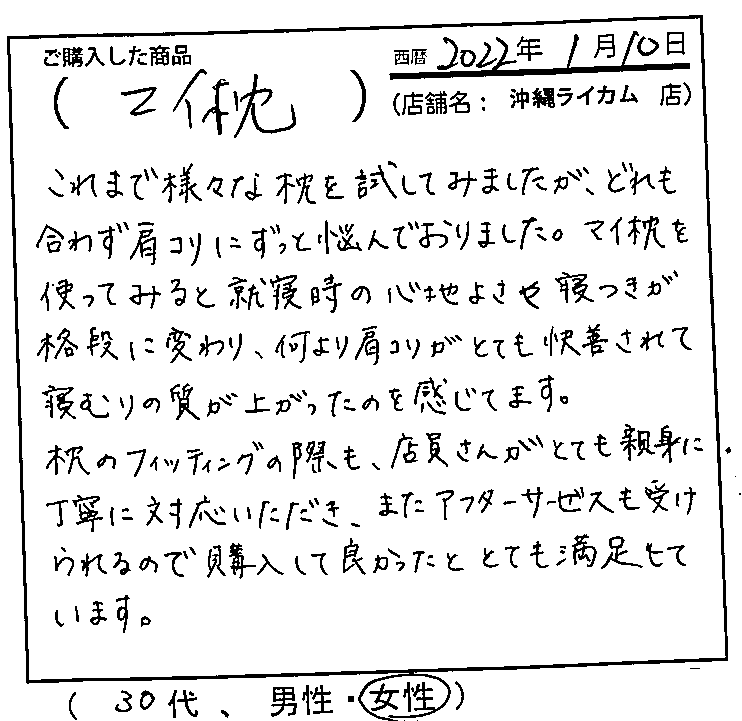 ご購入した商品
西暦 2022年 1月10日
( マイ枕 )
(店舗名: 沖縄ライカム 店)
これまで様々な枕を試してみましたが、どれも
合わず肩コリにずっと悩んでおりました。マイ枕を
使ってみると就寝時の心地よさや寝つきが
格段に変わり、何より肩コリがとても快善されて
寝むりの質が上がったのを感じてます。
枕のフィッティングの際も、店員さんがとても親身に
丁寧に対応いただき、またアフターサービスも受け
られるので購入して良かったと とても満足して
います。
( 30代、 男性・女性 )